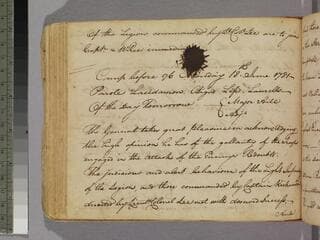 of the Legion commanded by Lt Col Lee are to join
Capt
Camp before 96 Monday 18th June 1781
Parole Countersign
Of the day Tomorrow Major Hill
Adjt
The General takes great pleasure in acknowledging
the high opinion he has of the gallantry of the Troops
engaged in the attack of the Enemys Redoubts
The judicious and alert behaviour of the Light Infantry
of the Legion, and those commanded by Captain Kirkwood
directed by Lieut Colonel Lee met with deserved success